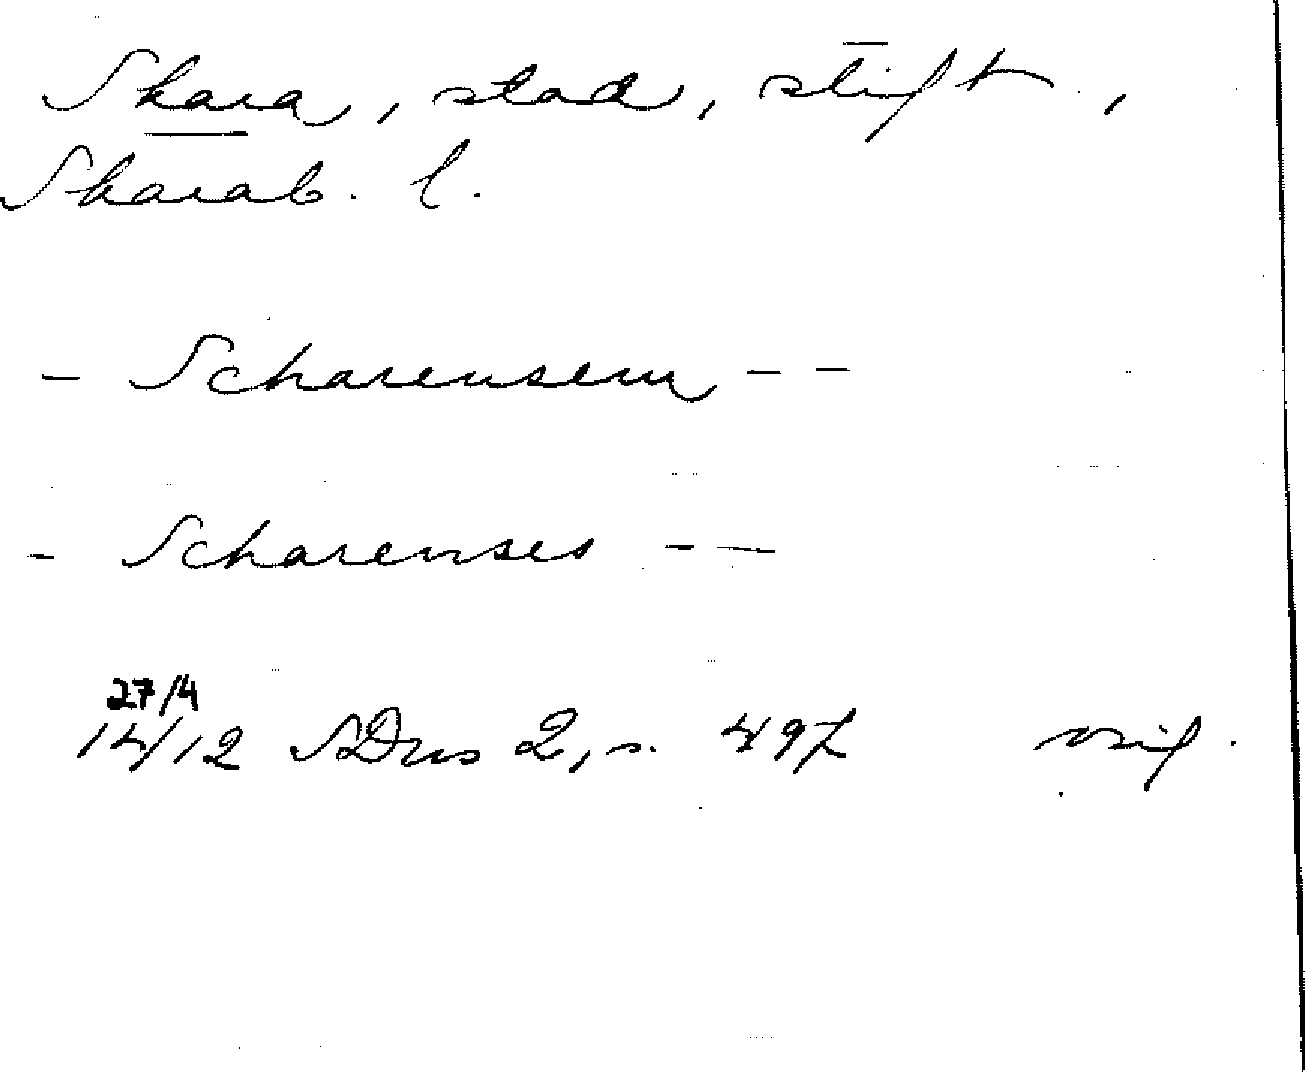 Skara, stad, stift,
Skarab. l.
- Scharensem - -
- Scharenses - -
27/4
1412 SDns 2, s. 497 orig.